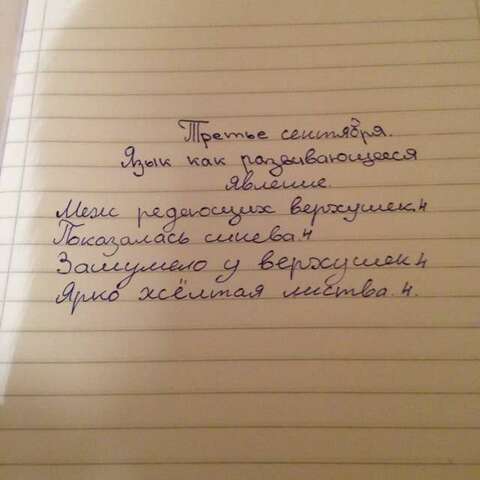 Третье сентября.
Язык как развивающееся
явление.
Меж редеющих верхушек.4
Показалась синева.4
Зашумело у верхушек.4
Ярко жёлтая листва.4.